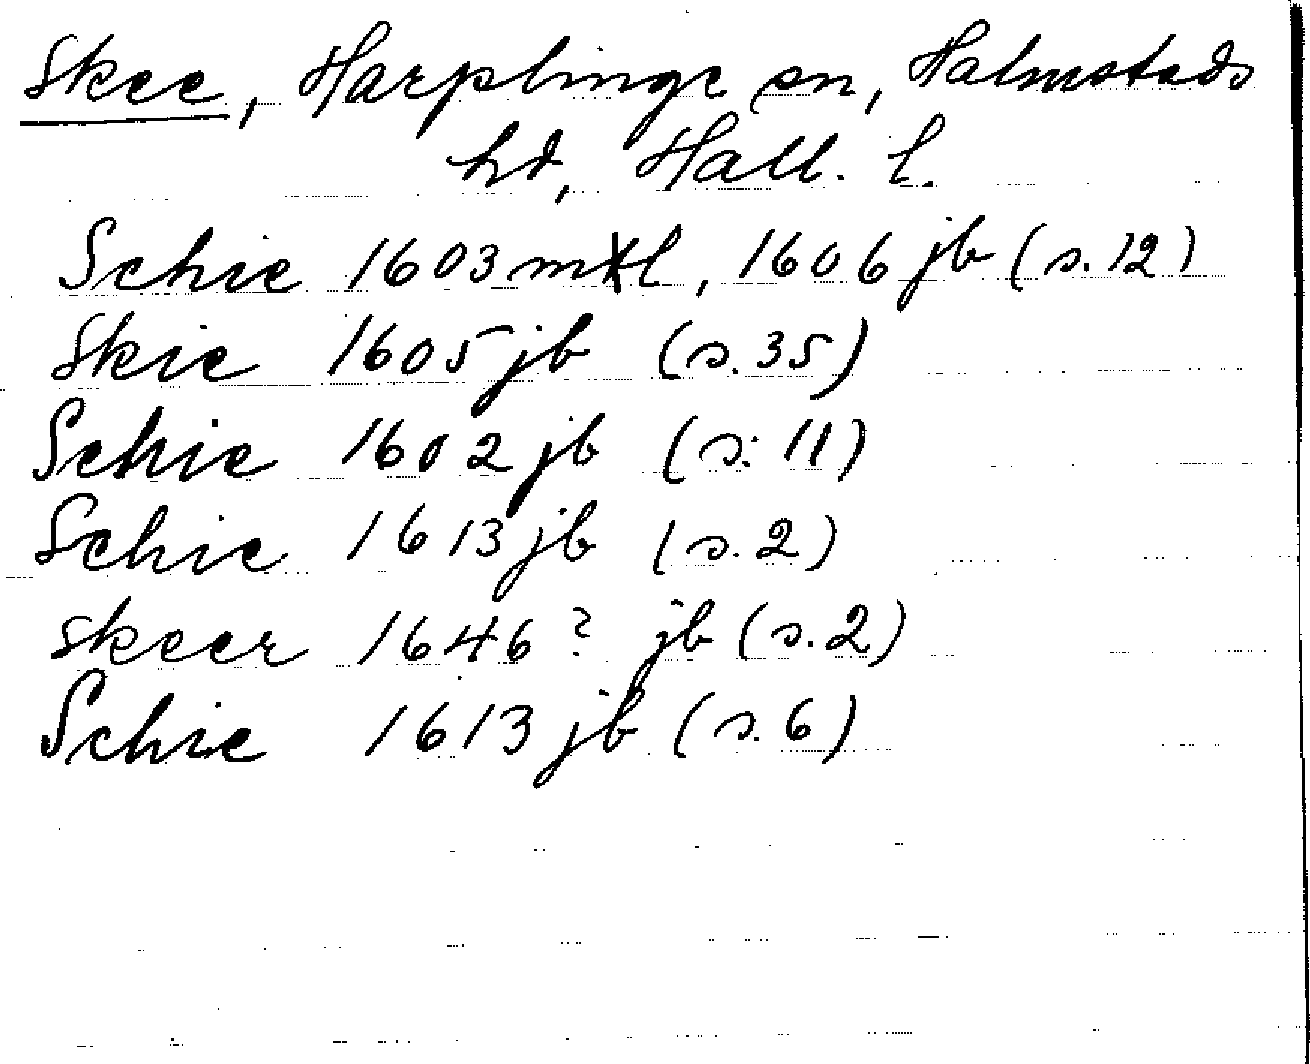 Skee, Harplinge sn, Halmstads
hd, Hall. l.
Schie 1603 mtl, 1606 jb (s. 12)
Skie 1605 jb (s. 35)
Schie 1602 jb (s: 11)
Schie 1613 jb (s. 2)
skeer 1646? jb (s. 2)
Schie 1613 jb (s. 6)